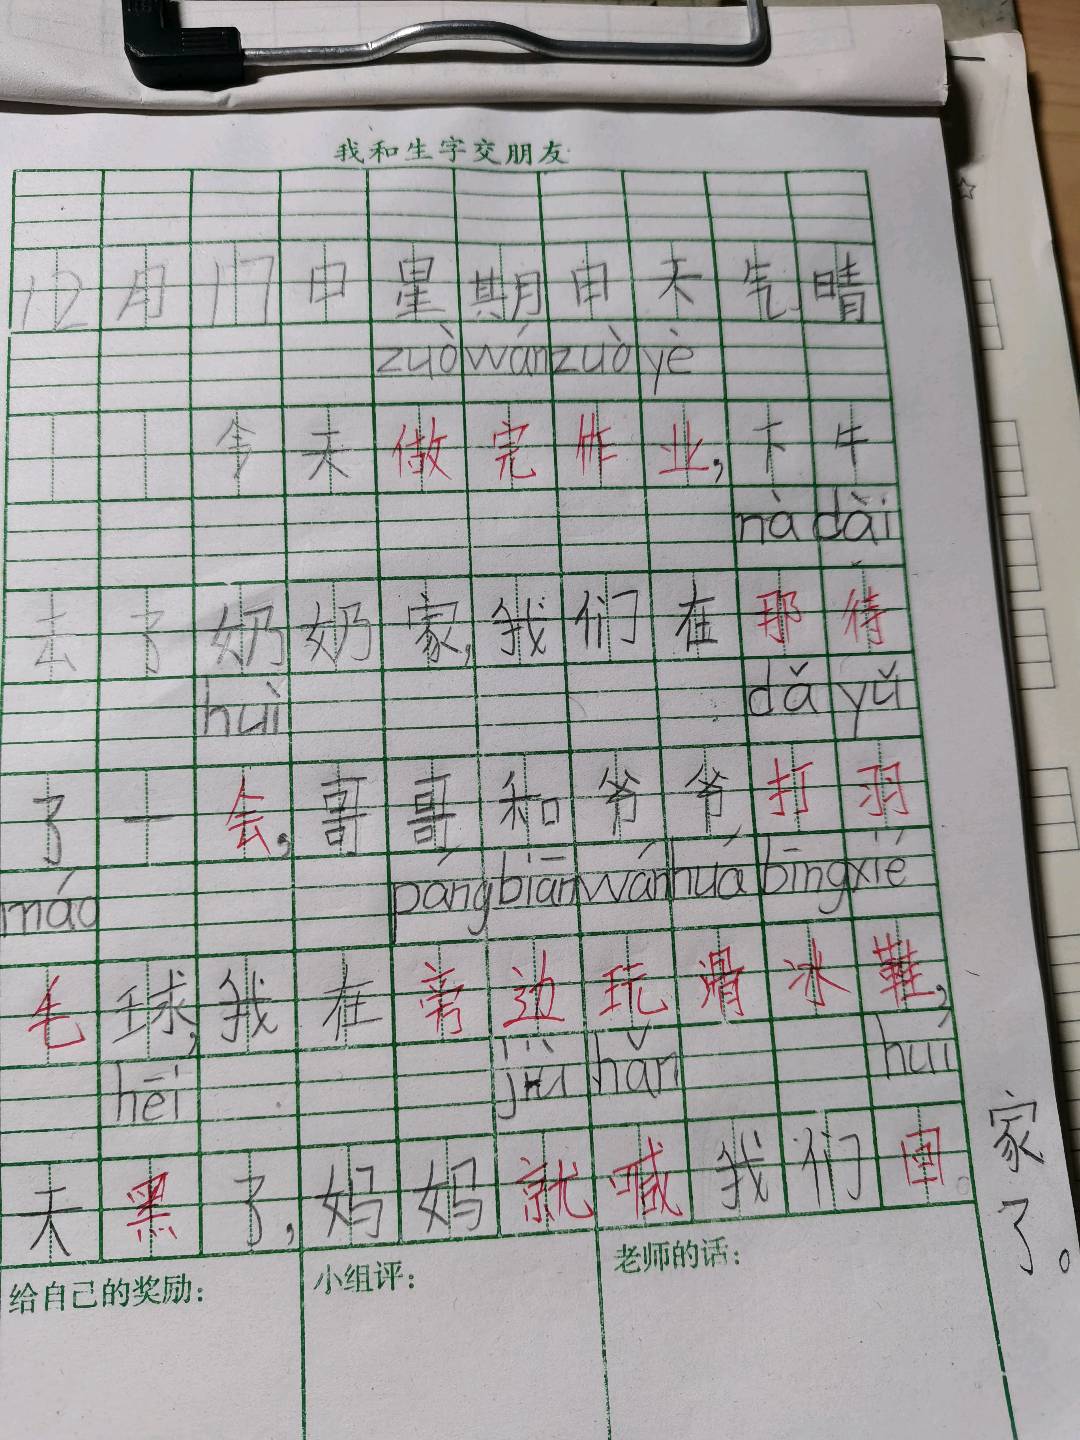 我和生字交朋友
12月17日星期日天气晴
zuò wán zuò yè
今天做完作业,下午
nà dāi
去了奶奶家,我们在那待
huì dǎ yǔ
了一会,哥哥和爷爷打羽
máo páng biān wán huá bīng xié
毛球,我在旁边玩滑冰鞋,
hēi jiù hǎn huí
天黑了,妈妈就喊我们回
家了。
给自己的奖励: 小组评: 老师的话: